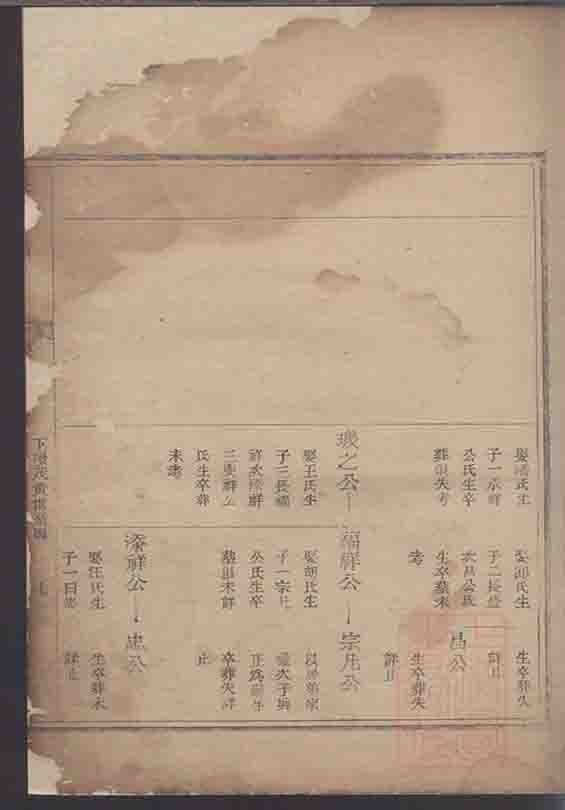 娶潘氏生
子一永祥
公氏生卒
葬俱失考
之公
娶王氏生
子三長福
祥次濬祥
三聖祥公
氏生卒葬
未考
娶邱氏生
子二長盛
次昌公氏
生卒墓未
考
福祥公
娶胡氏生
子一宗凡
公氏生卒
墓俱未詳
濬祥公
娶汪氏生
子一曰忠
生卒葬失
詳止
昌公
生卒葬失
詳止
宗凡公
以房弟宗
次子興
正為嗣生
卒葬失詳
止
忠公
生卒葬未
詳止